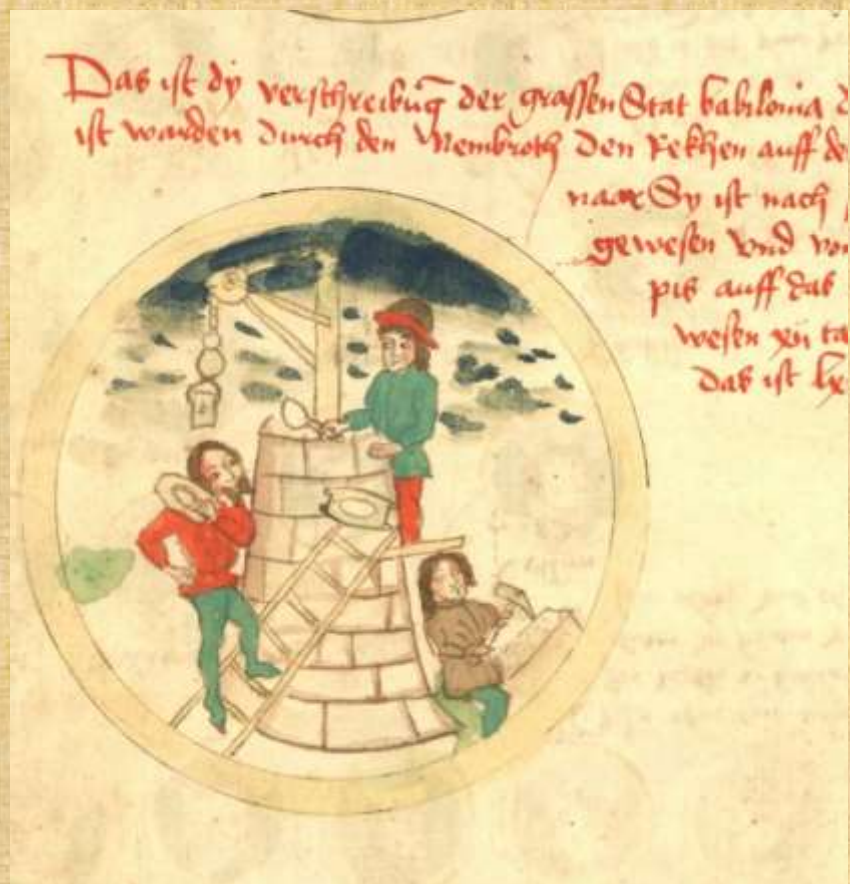 Das ist dy verschreibūg der grassen Stat babilonia d
ist warden durch den Nembroth den Rekhen auff de
naar Sy ist nach
gewesen vnd von
pis auff das
wesen xij ta
das ist lx